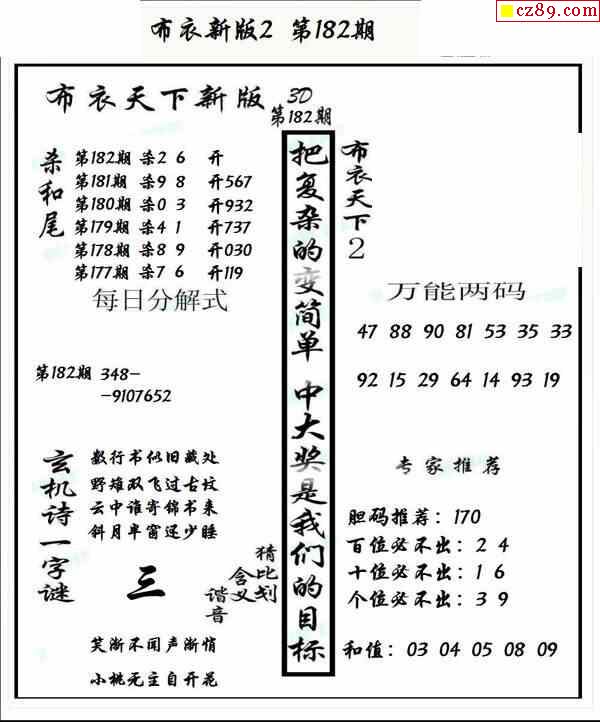 cz89.com
布衣新版2 第182期
布衣天下新版 3D
第182期
杀和尾
第182期 杀2 6 开
第181期 杀9 8 开567
第180期 杀0 3 开932
第179期 杀4 1 开737
第178期 杀8 9 开030
第177期 杀7 6 开119
每日分解式
第182期 348-
-9107652
玄机诗一字谜
数行书似旧藏处
野雉双飞过古坟
云中谁寄锦书来
斜月半窗还少睡
三
猜比划
含义
谐音
笑渐不闻声渐悄
小桃无主自开花
把复杂的变简单 中大奖是我们的目标
布衣天下2
万能两码
47 88 90 81 53 35 33
92 15 29 64 14 93 19
专家推荐
胆码推荐:170
百位必不出:2 4
十位必不出:1 6
个位必不出:3 9
和值:03 04 05 08 09